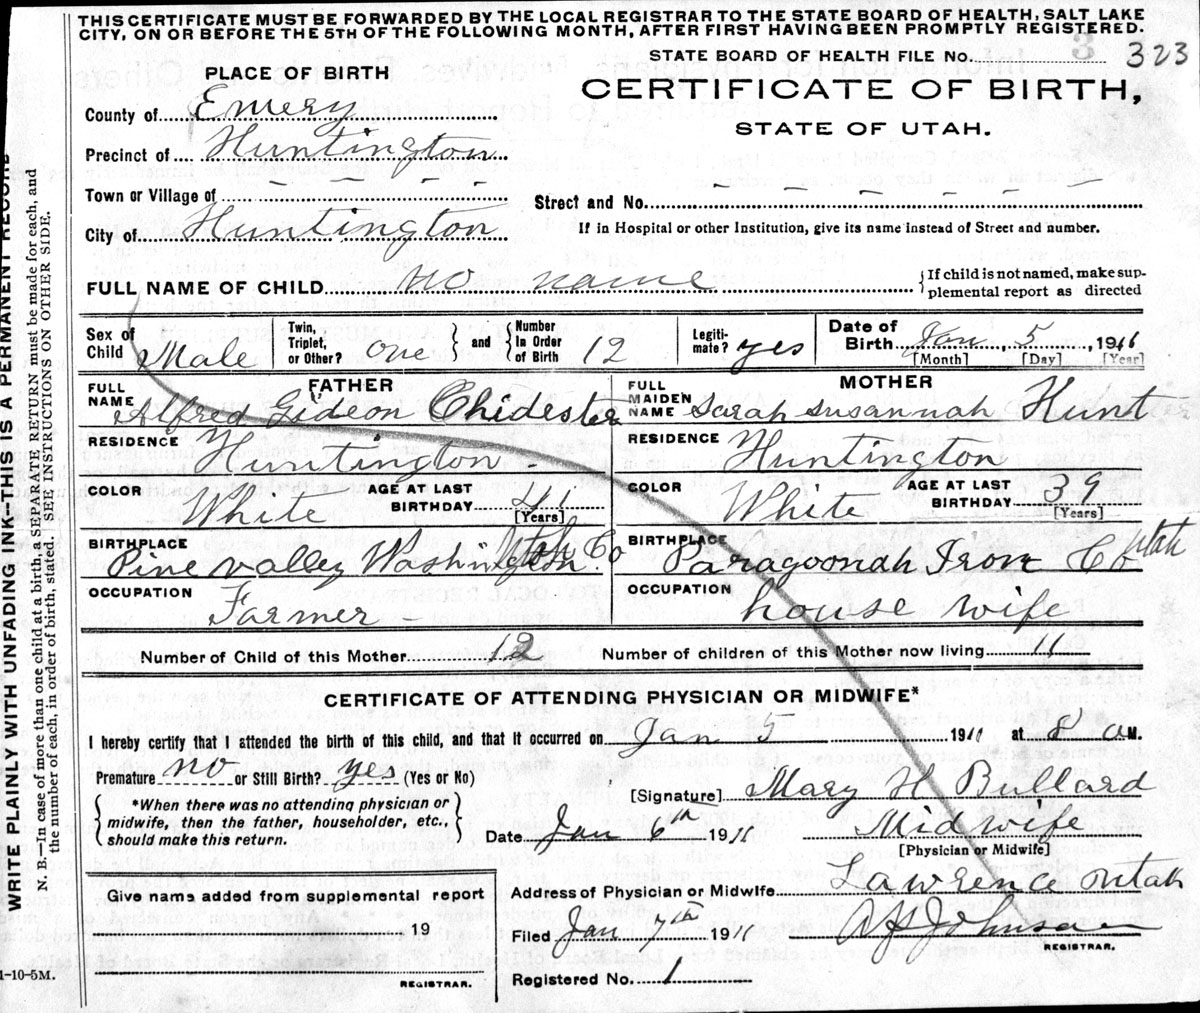 THIS CERTIFICATE MUST BE FORWARDED BY THE LOCAL REGISTRAR TO THE STATE BOARD OF HEALTH, SALT LAKE
CITY, ON OR BEFORE THE 5TH OF THE FOLLOWING MONTH, AFTER FIRST HAVING BEEN PROMPTLY REGISTERED.
STATE BOARD OF HEALTH FILE No. 3 323
PLACE OF BIRTH
CERTIFICATE OF BIRTH,
STATE OF UTAH.
County of Emery
Precinct of Huntington
Town or Village of - - - - -
Street and No. - - - - - -
City of Huntington
If in Hospital or other Institution, give its name instead of Street and number.
FULL NAME OF CHILD no name
{If child is not named, make sup-
plemental report as directed
Sex of Child Male
Twin, Triplet, or Other? one } and { Number In Order of Birth 12
Legiti-mate? yes
Date of Birth Jan 5, 1911
[Month] [Day] [Year]
FATHER
FULL NAME Alfred Gideon Chidester
MOTHER
FULL MAIDEN NAME Sarah Susannah Hunt
RESIDENCE Huntington -
RESIDENCE Huntington
COLOR White AGE AT LAST BIRTHDAY 41 [Years]
COLOR White AGE AT LAST BIRTHDAY 39 [Years]
BIRTHPLACE Pine valley Washington Co. Utah
BIRTHPLACE Paragoonah Iron Co Utah
OCCUPATION Farmer -
OCCUPATION house wife
Number of Child of this Mother 12
Number of children of this Mother now living 11
CERTIFICATE OF ATTENDING PHYSICIAN OR MIDWIFE*
I hereby certify that I attended the birth of this child, and that it occurred on Jan 5 1911 at 8 a M.
Premature no or Still Birth? yes (Yes or No)
{*When there was no attending physician or
midwife, then the father, householder, etc.,
should make this return.}
[Signature] Mary H Bullard
Date Jan 6th 1911
Midwife
[Physician or Midwife]
Give name added from supplemental report
19
REGISTRAR.
Address of Physician or Midwife Lawrence Utah
Filed Jan 7th 1911
Johnson
REGISTRAR.
Registered No. 1
1-10-5M.
WRITE PLAINLY WITH UNFADING INK--THIS IS A PERMANENT RECORD
N. B.—In case of more than one child at a birth, a SEPARATE RETURN must be made for each, and
the number of each, in order of birth, stated. SEE INSTRUCTIONS ON OTHER SIDE.